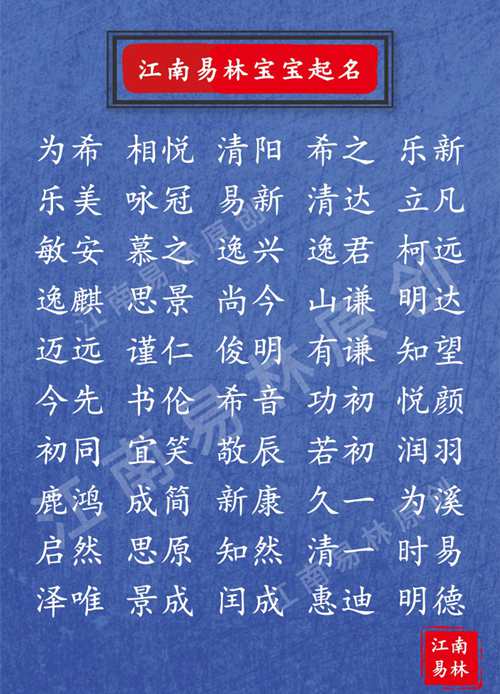 江南易林宝宝起名
为希 相悦 清阳 希之 乐新
乐美 咏冠 易新 清达 立凡
敏安 慕之 逸兴 逸君 柯远
逸麒 思景 尚今 山谦 明达
迈远 谨仁 俊明 有谦 知望
今先 书伦 希音 功初 悦颜
初同 宜笑 敬辰 若初 润羽
鹿鸿 成简 新康 久一 为溪
启然 思原 知然 清一 时易
泽唯 景成 闰成 惠迪 明德
江南易林原创
江南易林原创
江南易林原创
江南
易林